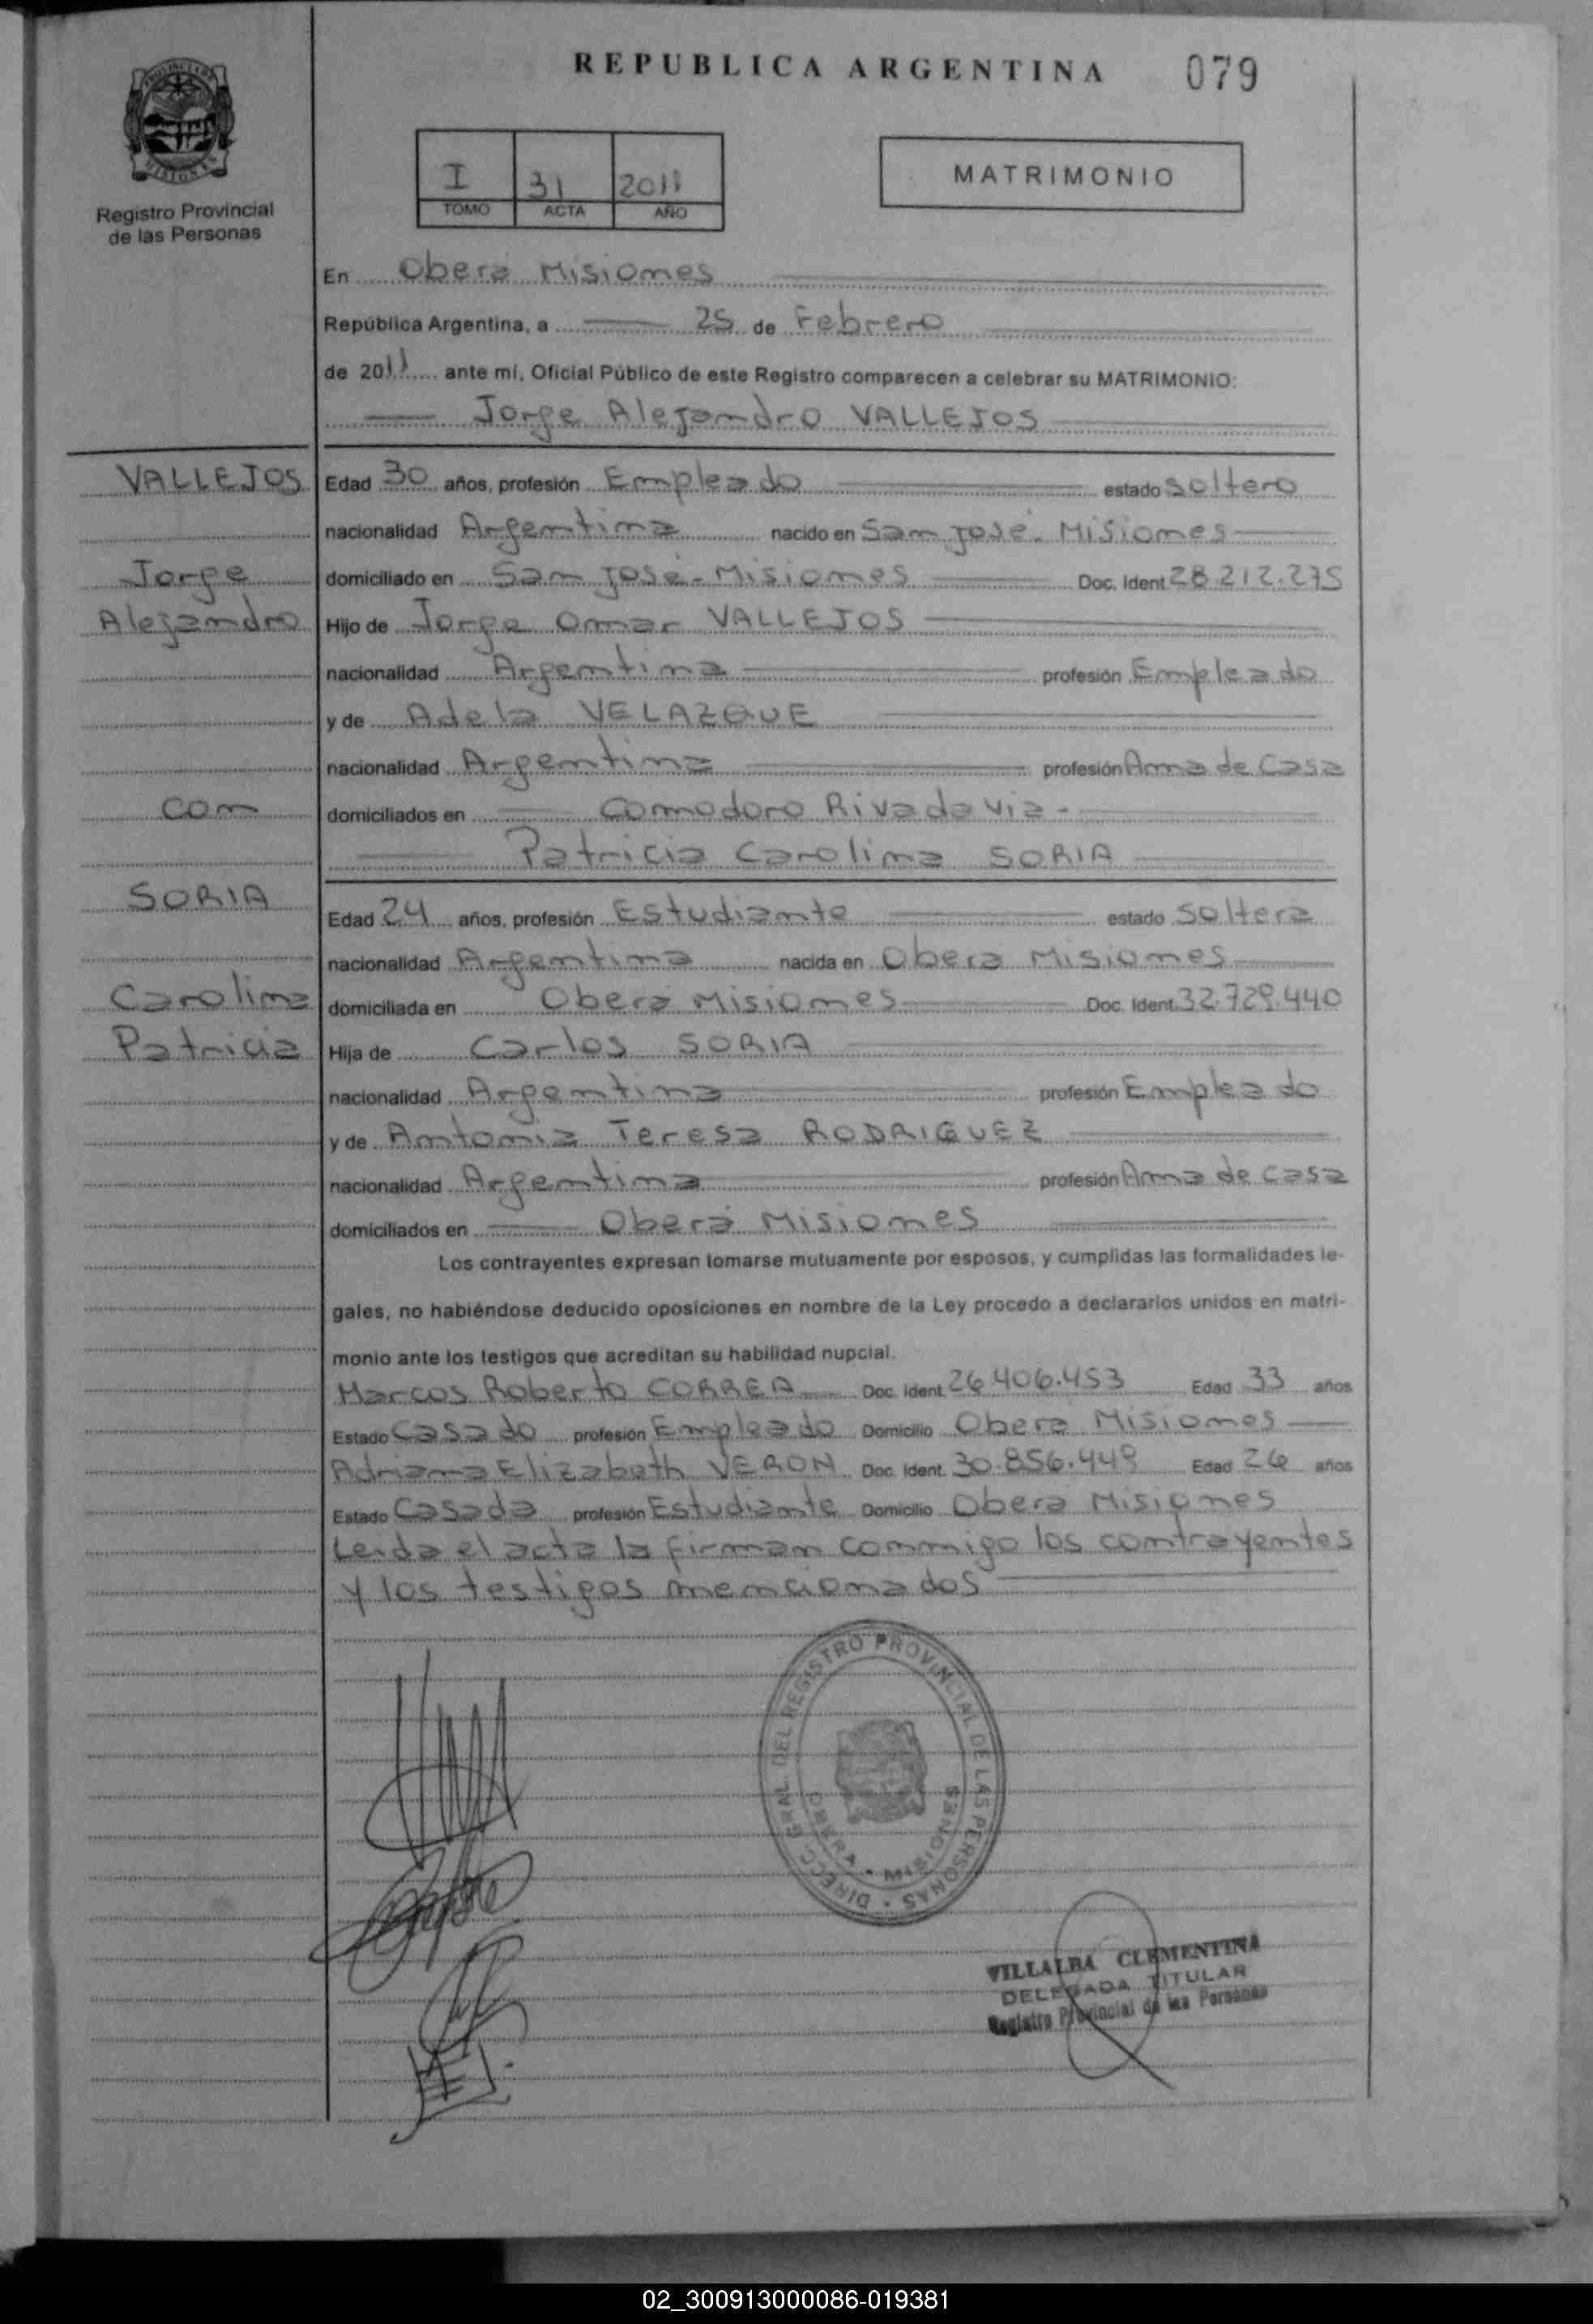 REPUBLICA ARGENTINA 079
PROVINCIA DE MISIONES
Registro Provincial
de las Personas
I 31 2011
TOMO ACTA AÑO
MATRIMONIO
En Obera Misiones
República Argentina, a 25 de Febrero
de 2011 ante mí, Oficial Público de este Registro comparecen a celebrar su MATRIMONIO:
Jorge Alejandro VALLEJOS
VALLEJOS
Jorge
Alejandro
con
SORIA
Carolina
Patricia
Edad 30 años, profesión Empleado estado soltero
nacionalidad Argentina nacido en San José. Misiones
domiciliado en San José - Misiones Doc. Ident. 28.212.275
Hijo de Jorge Omar VALLEJOS
nacionalidad Argentina profesión Empleado
y de Adela VELAZQUE
nacionalidad Argentina profesión Ama de Casa
domiciliados en Comodoro Rivadavia -
Patricia Carolina SORIA
Edad 24 años, profesión Estudiante estado Soltera
nacionalidad Argentina nacida en Obera Misiones
domiciliada en Obera Misiones Doc. Ident. 32.729.440
Hija de Carlos SORIA
nacionalidad Argentina profesión Empleado
y de Antonia Teresa RODRIGUEZ
nacionalidad Argentina profesión Ama de Casa
domiciliados en Oberá Misiones
Los contrayentes expresan tomarse mutuamente por esposos, y cumplidas las formalidades le-
gales, no habiéndose deducido oposiciones en nombre de la Ley procedo a declararlos unidos en matri-
monio ante los testigos que acreditan su habilidad nupcial.
Marcos Roberto CORREA Doc. Ident. 26.406.453 Edad 33 años
Estado Casado profesión Empleado Domicilio Obera Misiones
Adriana Elizabeth VERON Doc. Ident. 30.856.449 Edad 26 años
Estado Casada profesión Estudiante Domicilio Obera Misiones
Leida el acta la firman conmigo los contrayentes
y los testigos mencionados
DIRECC. GRAL. DEL REGISTRO PROVINCIAL DE LAS PERSONAS
OBERA • MISIONES
VILLALBA CLEMENTINA
DELEGADA TITULAR
Registro Provincial de las Personas
02_300913000086-019381